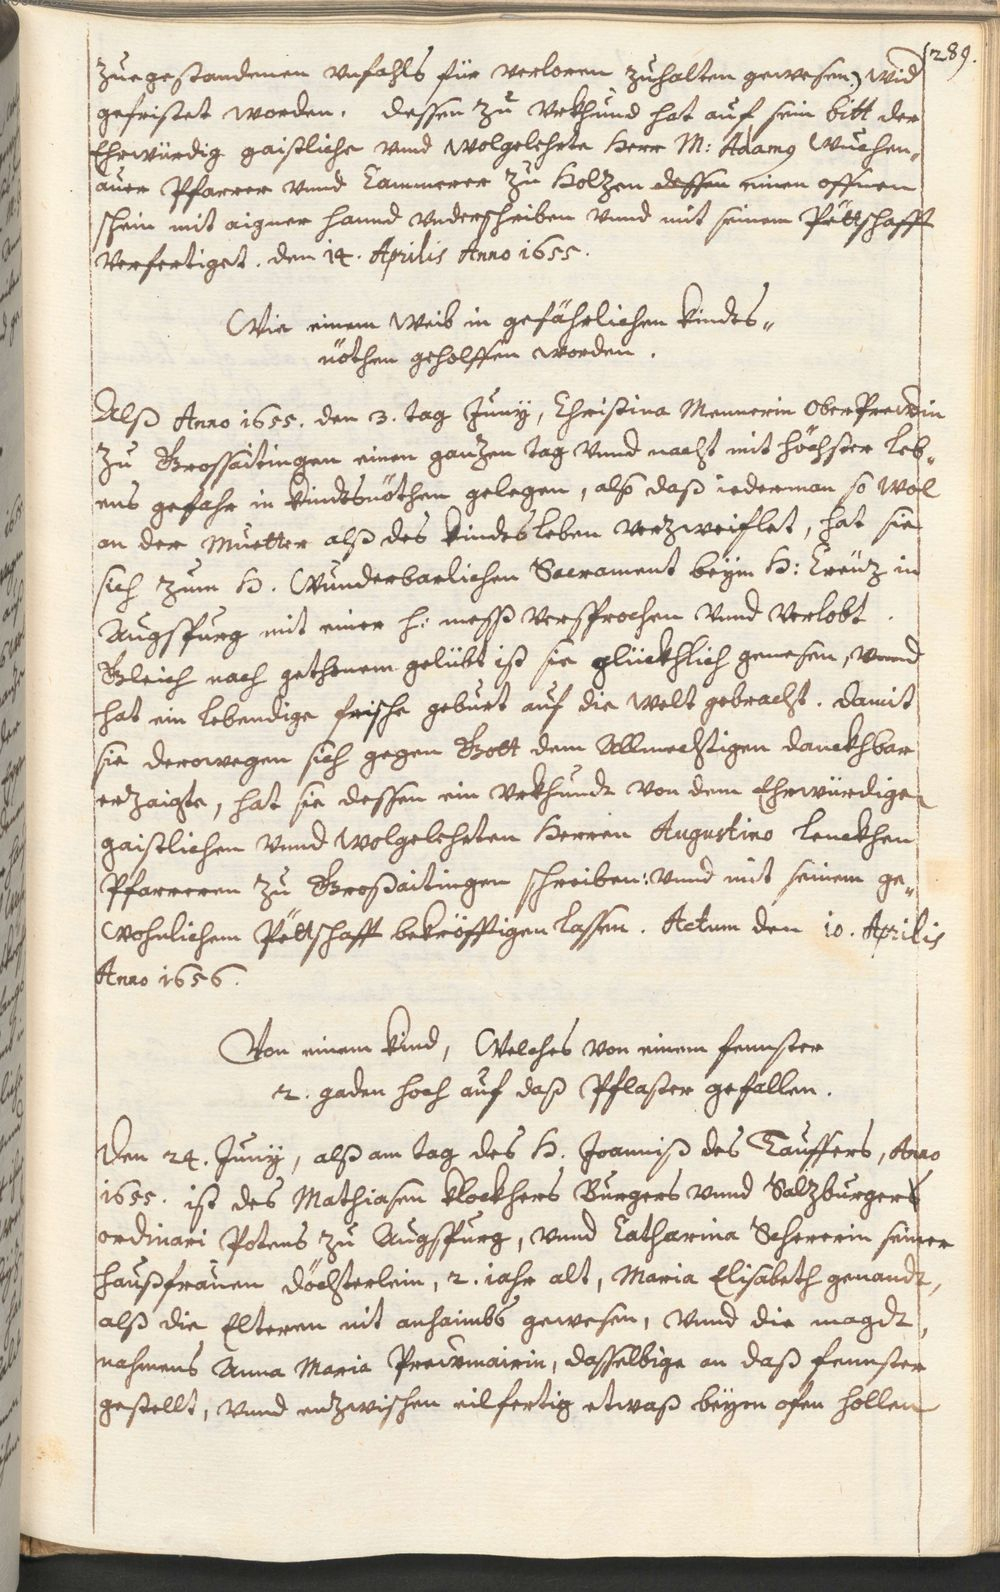 289.
zuegestandenen unfahls für verloren zuhalten gewesen) wid
gefristet worden. dessen zu Urkhund hat auf sein bitt der
Ehrwürdig gaistliche unnd wolgelehrte Herr M: Adamg Wuchen„
auer Pfarrer unnd Cammerer zu Holtzen dessen einen offnen
schein mit aigner hannd underschriben unnd mit seinem Pettschafft
verfertiget. den 14. Aprilis Anno 1655.
Wie einem Weib in gefährlichen kindes„
nöthen geholffen worden.
Alß Anno 1655. den 3. tag Junÿ, Christina Mennerin Ober Prewin
zu Grossaitingen einen gantzen tag unnd nacht mit höchster leb„
ens gefahr in kindtsnöthen gelegen, also daß iederman so wol
an der Muetter alß des kindes leben verzweiflet, hat sie
sich zum H. Wunderbarlichen Sacrament beÿm H: Creütz in
Augspurg mit einer h: mess versprochen unnd verlobt.
Gleich nach gethonem gelübt ist sie glückhlich genesen, unnd
hat ein lebendige frische geburt auf die welt gebracht. damit
sie derowegen sich gegen Gott dem Allmechtigen danckhbar
erzaigte, hat sie dessen ein Urkhundt von dem Ehrwürdigen
gaistlichen unnd wolgelehrten Herren Augustino Lenckhen
Pfarreren zu Großaitingen schreiben: unnd mit seinem ge„
wohnlichem Pettschafft bekröfftigen lassen. Actum den 10. Aprilis
Anno 1656.
Von einem kind, Welches von einem fennster
2. gaden hoch auf daß Pflaster gefallen.
Den 24. Junÿ, alß am tag des H. Joanniß des Tauffers, Anno
1655. ist des Mathiasen Klockhers Burgers unnd Saltzburgers
ordinari Potens zu Augspurg, unnd Catharina Schererin seiner
haußfrauen döchterlein, 2. iahr alt, Maria Elisabeth genandt,
alß die Elteren nit anhaimbs gewesen, unnd die magdt,
nahmens Anna Maria Prewmairin, dasselbige an daß fennster
gestellt, unnd entzwischen eilfertig etwaß beÿm ofen hollen